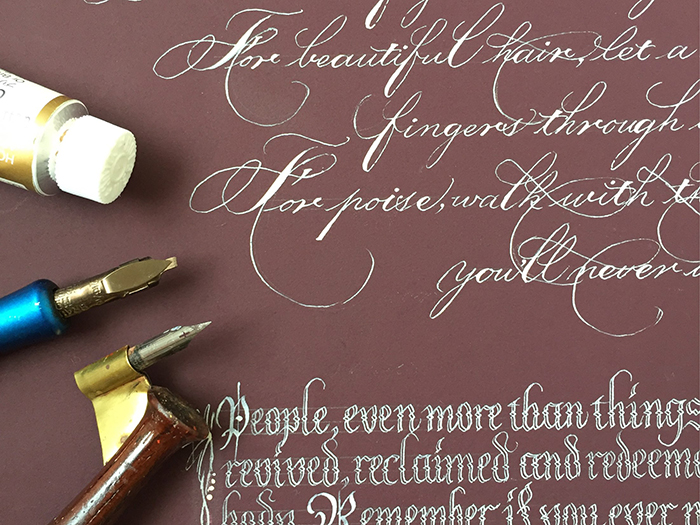 For beautiful hair, let a
fingers through
For poise, walk with
you'll never
People, even more than things
revived, reclaimed and redeeme
body. Remember if you ever